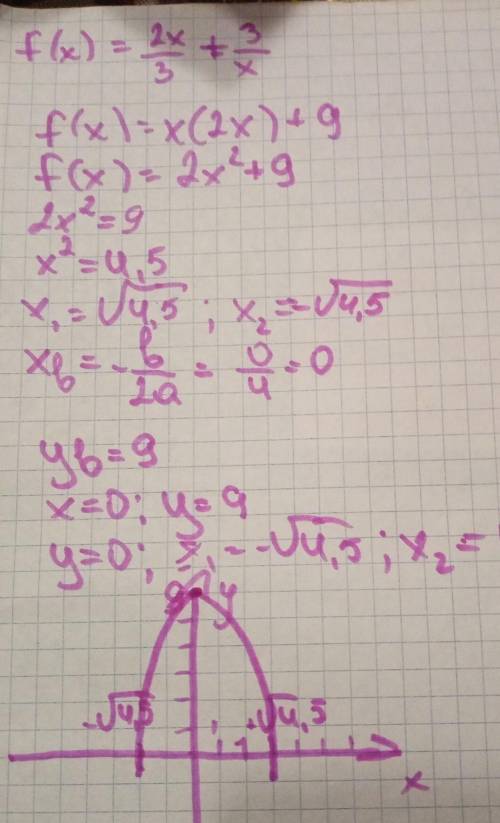 f(x) = 2x/3 + 3/x
f(x) = x(2x) + 9
f(x) = 2x² + 9
2x² = 9
x² = 4,5
x₁ = √4,5 ; x₂ = -√4,5
xв = -b/2a = 0/4 = 0
yв = 9
x=0; y=9
y=0; x₁ = -√4,5; x₂ =
9 y
-√4,5 √4,5
x